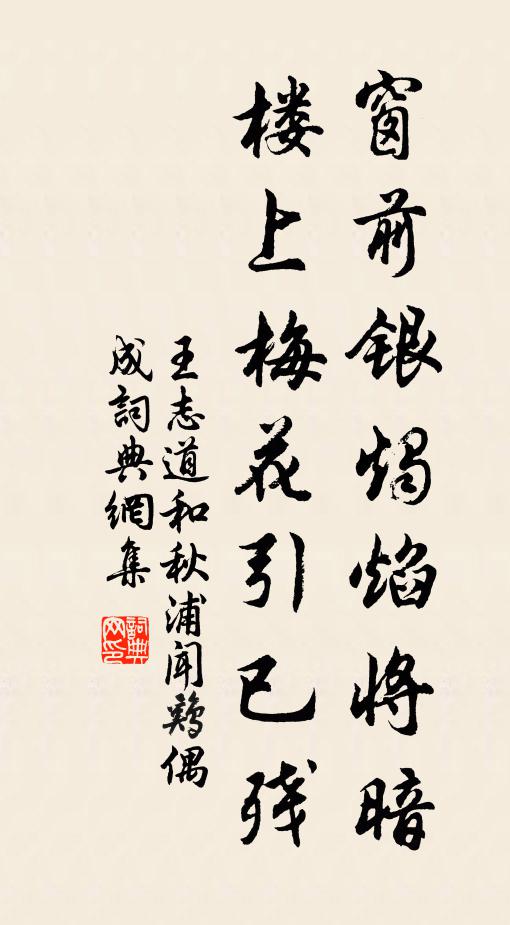 窗前银烛焰将暗
楼上梅花引已残
王志道和秋浦闻鸡偶
成詞典網集
詞典网印